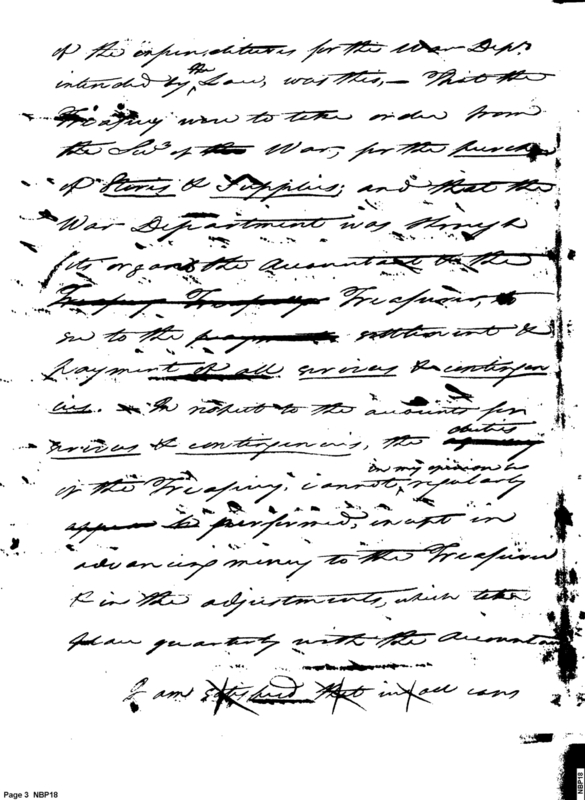 of the expenditures for the War Dept.
intended by the Law, was this, — That the
Treasury were to take order from
the Secy of the War, for the purchase
of Stores & Supplies; and that the
War Department was through
its organ the Accountant & the
Treasury Treasurer, to
see to the settlement &
payment of all services & contingen
cies. In respect to the accounts for
services & contingencies, the duties
of the Treasury, cannot, in my opinion be regularly
performed, except in
advancing money to the Treasurer
& in the adjustments, which takes
place quarterly with the Accountant
I am satisfied that in all cases
Page 3 NBP18
NBP18